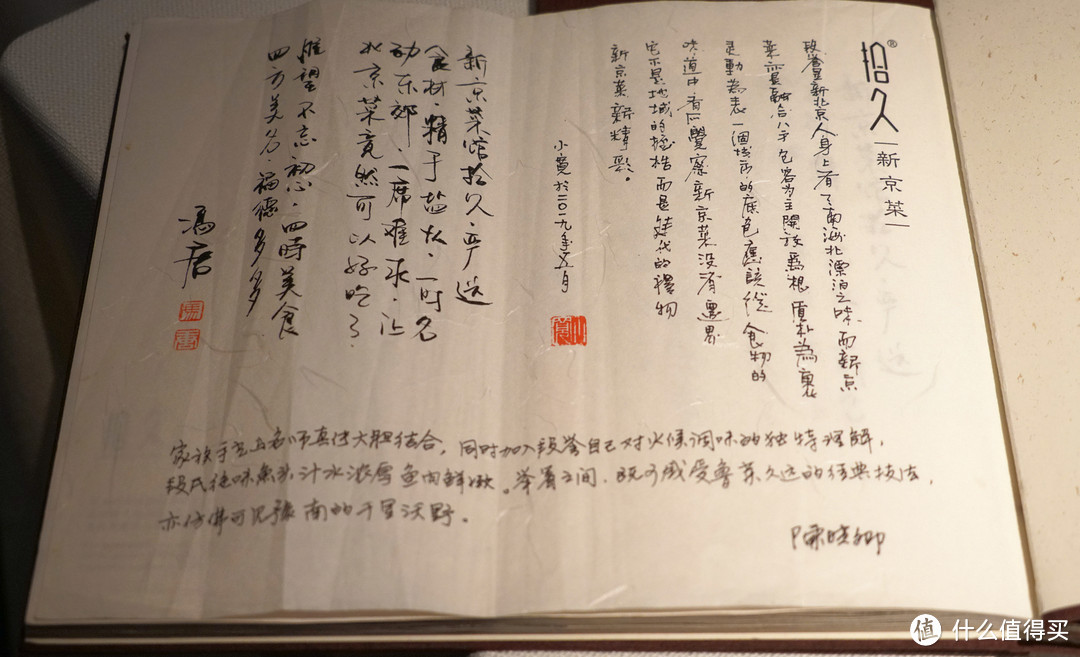 拾久®
新京菜
段誉是新北京人身上有了南漂北漂泊之味而新京
菜亦是融合八方包容为主開放為根 質朴為裏
灵動為表一個城市的底色應該從食物的
味道中有所覺察新京菜没有邊界
它不是地域的桎梏而是時代的禮物
新京菜新精彩。
小寬於二〇一九年五月
新京菜馆拾久,严选
食材,精于盐火,一时名
动东郊,一席难求,让
北京菜竟然可以好吃了
唯望不忘初心,四時美食
四方美名,福德多多
馮唐
家族手艺上名师真传大胆结合,同时加入段誉自己对火候调味的独特理解,
段氏绝味鱼头汁水浓厚鱼肉鲜嫩。举箸之间,既可感受鲁菜久远的经典技法,
亦仿佛可见豫南的千里沃野。
陈晓卿
值 什么值得买